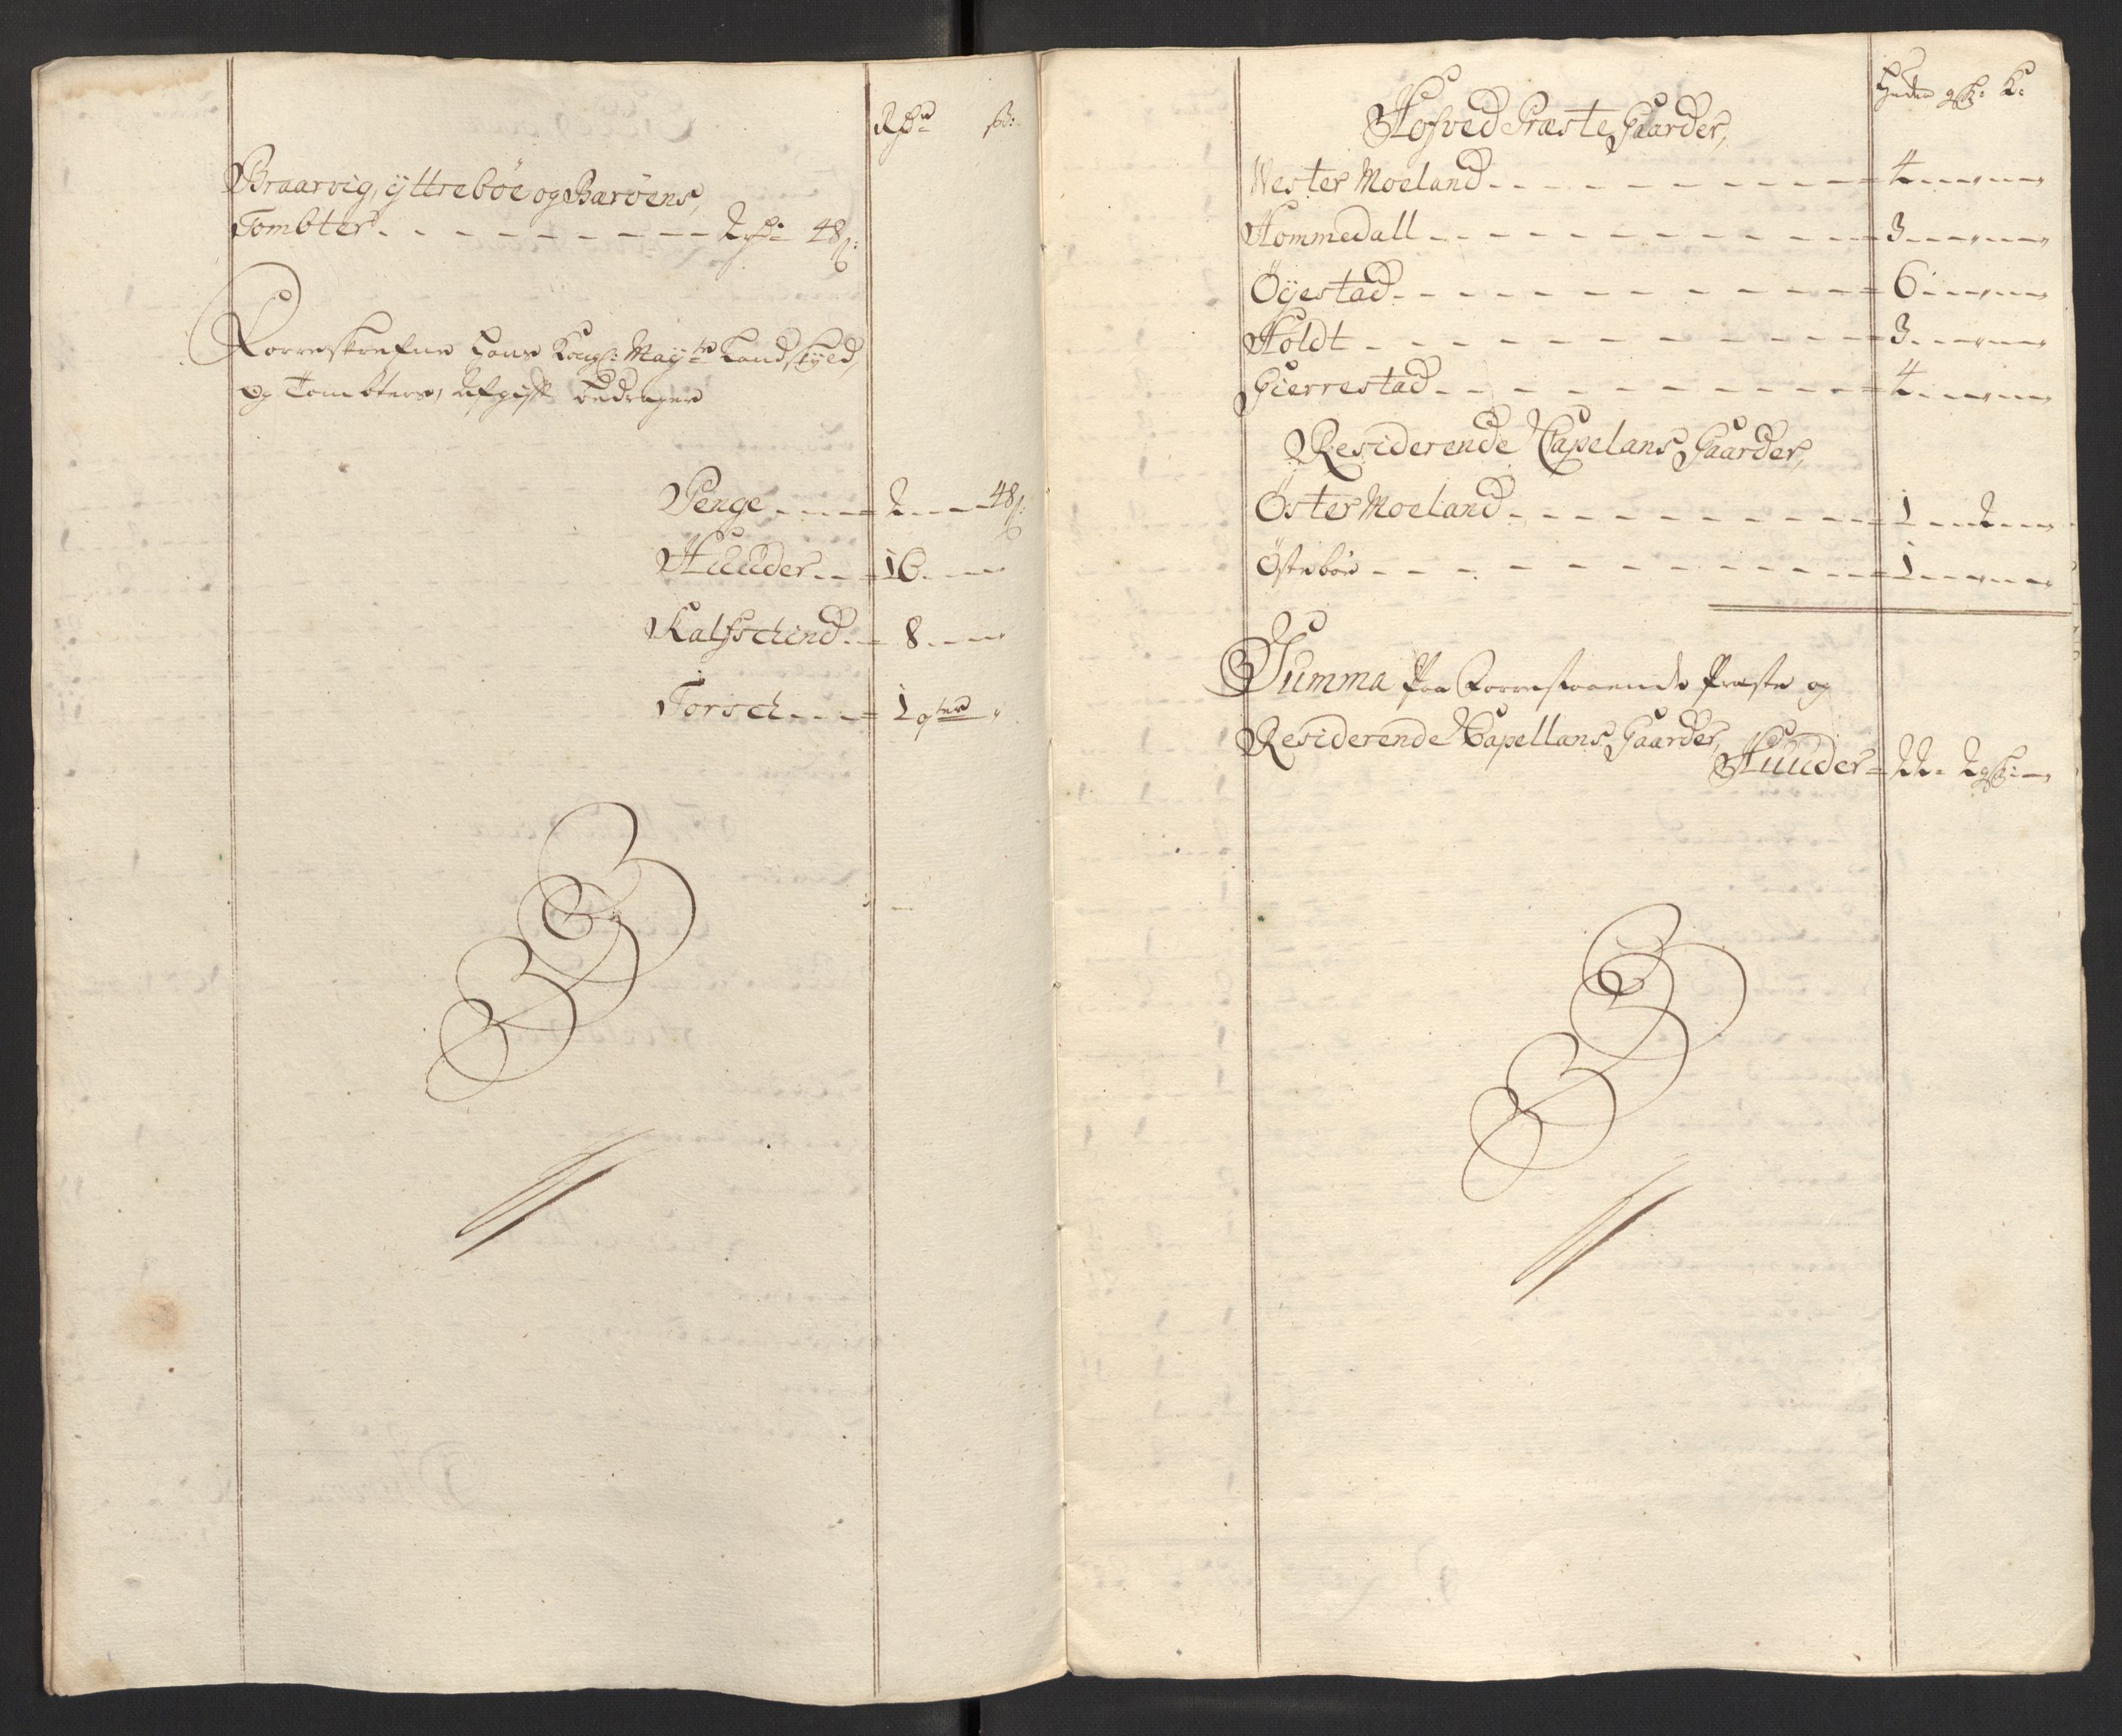 Rdr ß:
Braarvig, ÿttrebøe og Barøens,
Tombter. - - - - - - - - - - 2 rdr 48 ß:
Forreskrefne Hans Kongl: Mayts Landskyld,
og Tombters, Afgift bedrager
Penge - - - - 2 - - - - 48 ß:
Huuder - - - 16 - - - -
Kalfschind - - 8 - - - -
Torsch - - - - 1 qter "
Huder gsk: K:
Hofved Præste Gaarder,
Wester Moeland - - - - - - - - - - 4 - - " - - "
Hommedall - - - - - - - - - - 3 - - " - - "
Öÿestad - - - - - - - - - - 6 - - " - - "
Holdt - - - - - - - - - - 3 - - " - - "
Gierrestad - - - - - - - - - - 4 - - " - - "
Residerende Capelans Gaarder,
Öster Moeland - - - - - - - - - - 1 - - 2 - - "
Östebøe - - - - - - - - - - 1 - - " - - "
Summa Paa Forrestaaende Præste og
Residerende Capellans Gaarder,
Huuder - 22 - 2 gsk: - "